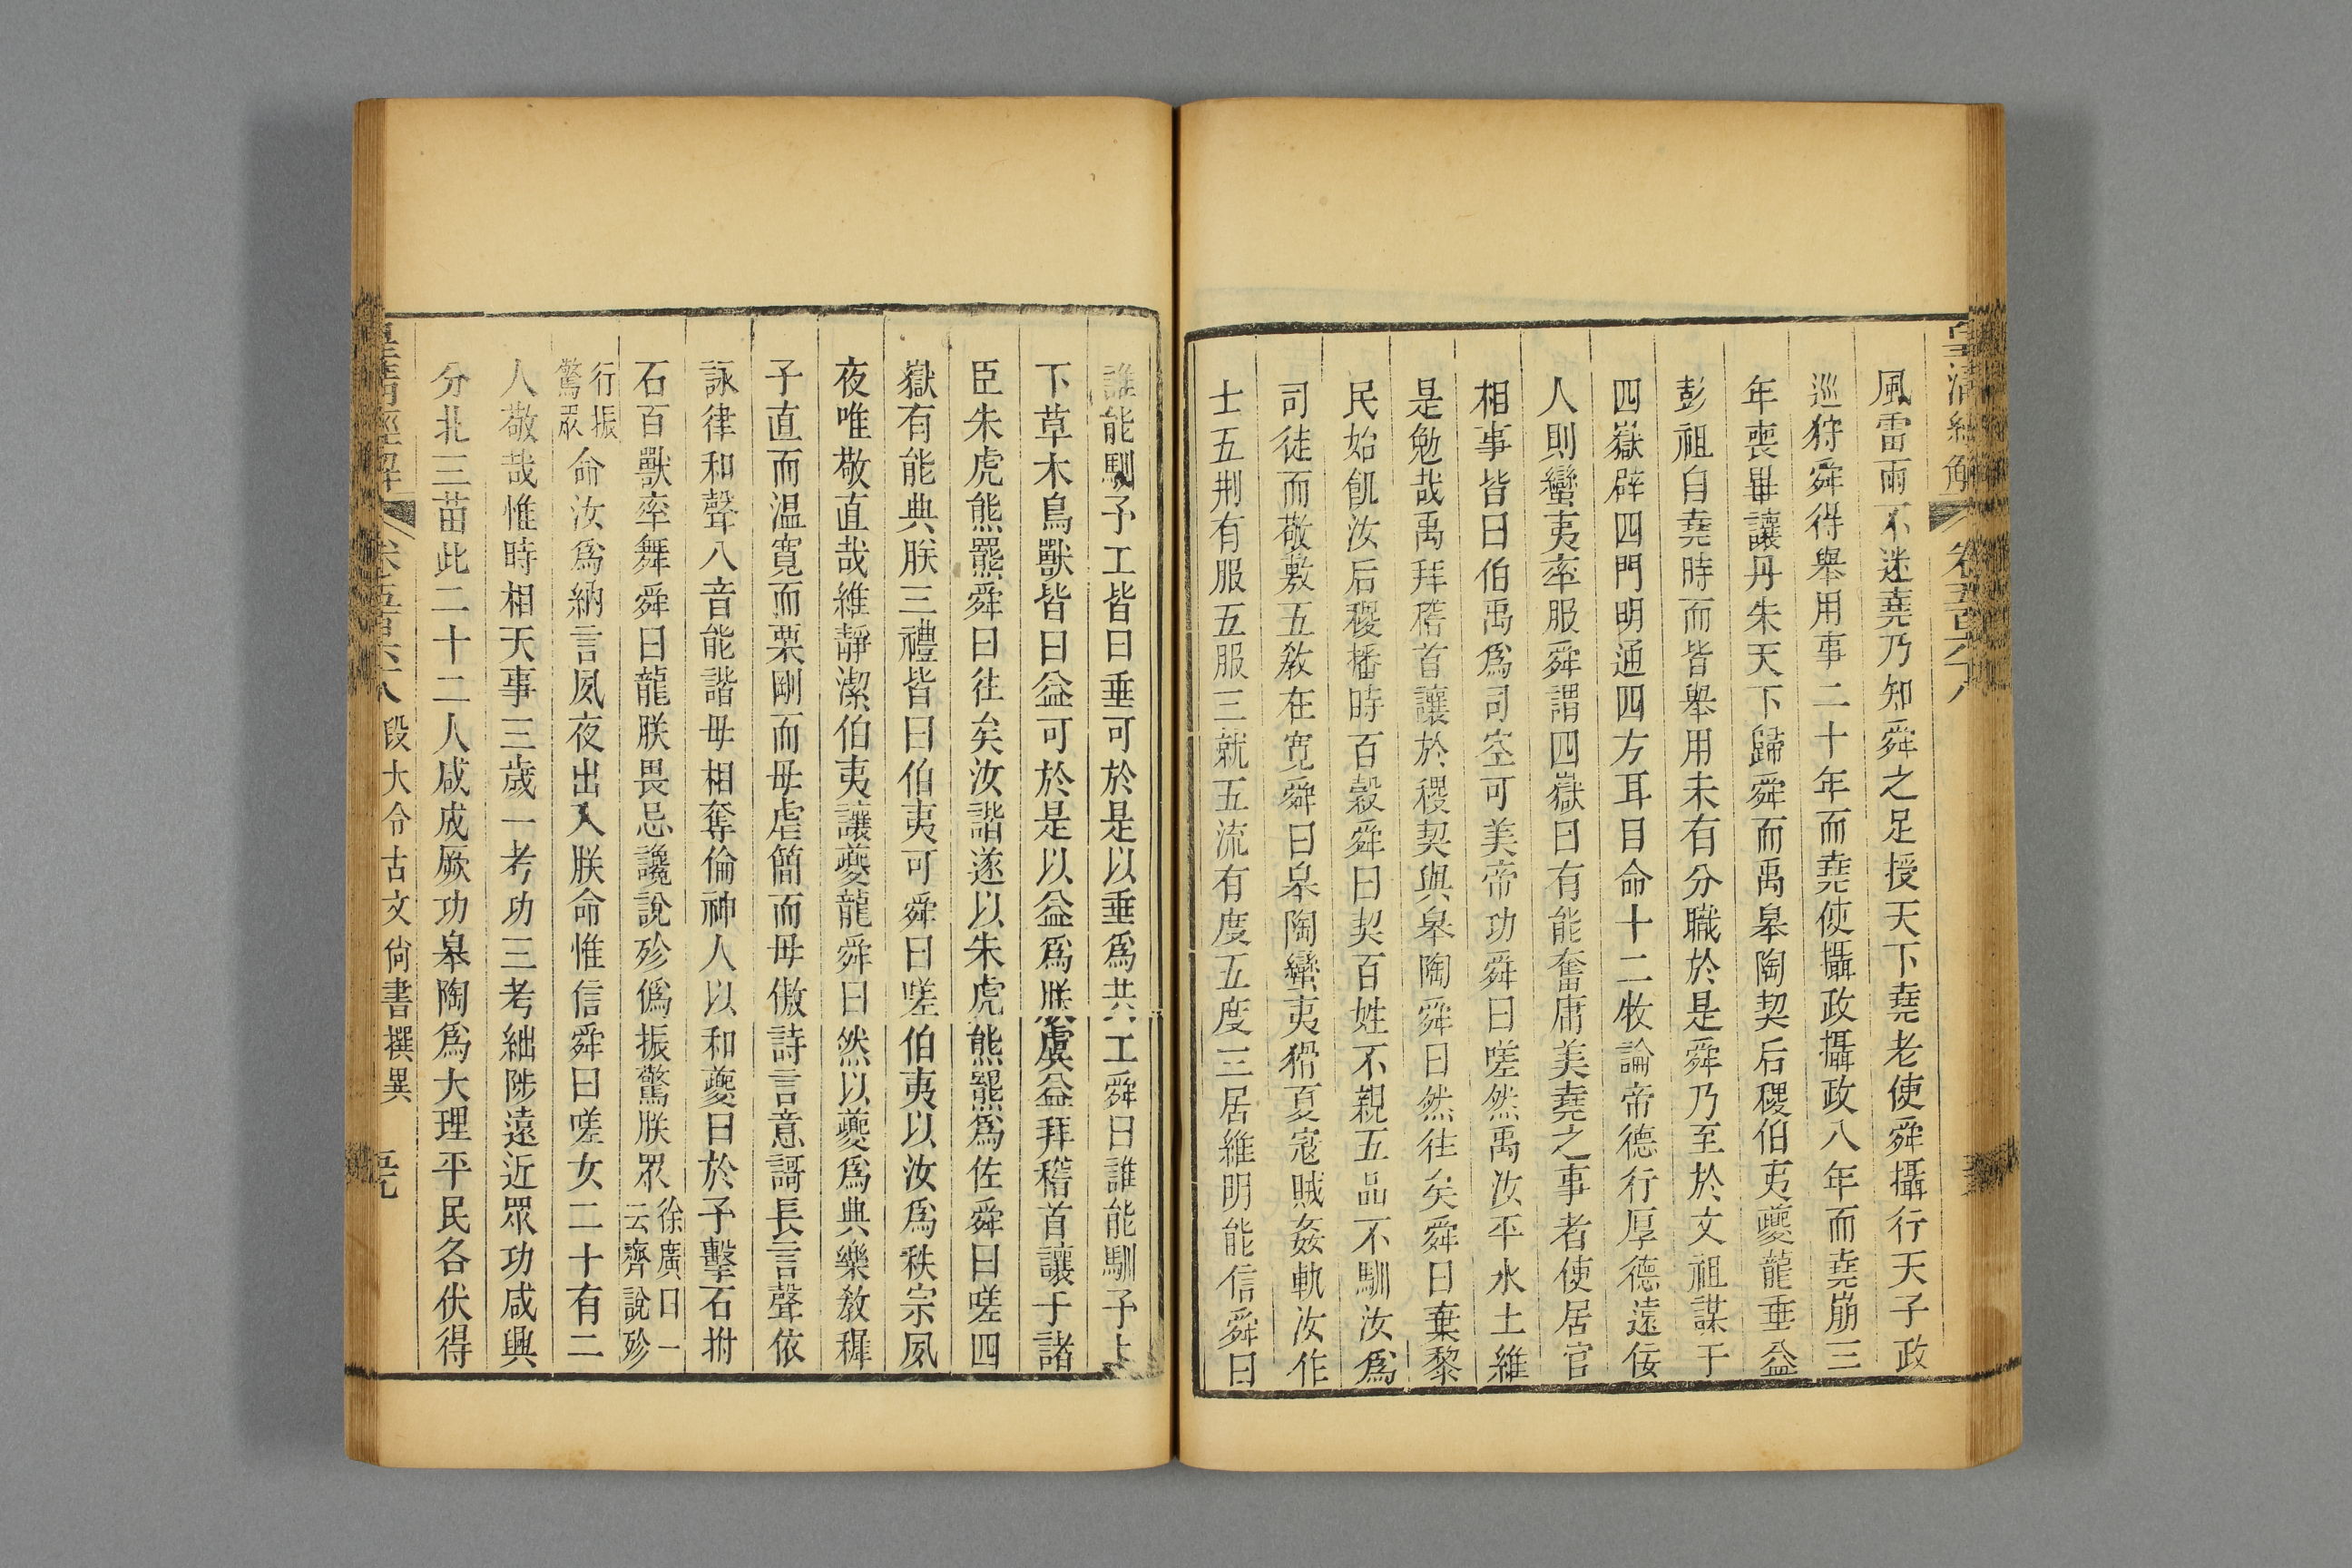 風雷雨不迷堯乃知舜之足授天下堯老使舜攝行天子政
巡狩舜得舉用事二十年而堯使攝政攝政八年而堯崩三
年喪畢讓丹朱天下歸舜而禹皋陶契后稷伯夷夔龍垂益
彭祖自堯時而皆舉用未有分職於是舜乃至於文祖謀于
四嶽辟四門明通四方耳目命十二牧論帝德行厚德遠佞
人則蠻夷率服舜謂四嶽曰有能奮庸美堯之事者使居官
相事皆曰伯禹爲司空可美帝功舜曰嗟然禹汝平水土維
是勉哉禹拜稽首讓於稷契與皋陶舜曰然往矣舜曰棄黎
民始飢汝后稷播時百穀舜曰契百姓不親五品不馴汝爲
司徒而敬敷五敎在寬舜曰皋陶蠻夷猾夏寇賊姦軌汝作
士五荆有服五服三就五流有度五度三居維明能信舜曰
誰能馴予工皆曰垂可於是以垂爲共工舜曰誰能馴予上
下草木鳥獸皆曰益可於是以益爲朕虞益拜稽首讓于諸
臣朱虎熊羆舜曰往矣汝諧遂以朱虎熊羆爲佐舜曰嗟四
嶽有能典朕三禮皆曰伯夷可舜曰嗟伯夷以汝爲秩宗夙
夜唯敬直哉維靜潔伯夷讓夔龍舜曰然以夔爲典樂敎穉
子直而温寛而栗剛而毋虐簡而毋傲詩言意謌長言聲依
詠律和聲八音能諧毋相奪倫神人以和夔曰於予擊石拊
石百獸率舞舜曰龍朕畏忌讒說殄僞振驚朕眾徐廣曰一云齊說殄
行振驚眾命汝爲納言夙夜出入朕命惟信舜曰嗟女二十有二
人敬哉惟時相天事三歲一考功三考絀陟遠近眾功咸興
分北三苗此二十二人咸成厥功皋陶爲大理平民各伏得
皇清經解 卷五百六十八 段大令古文尙書撰異